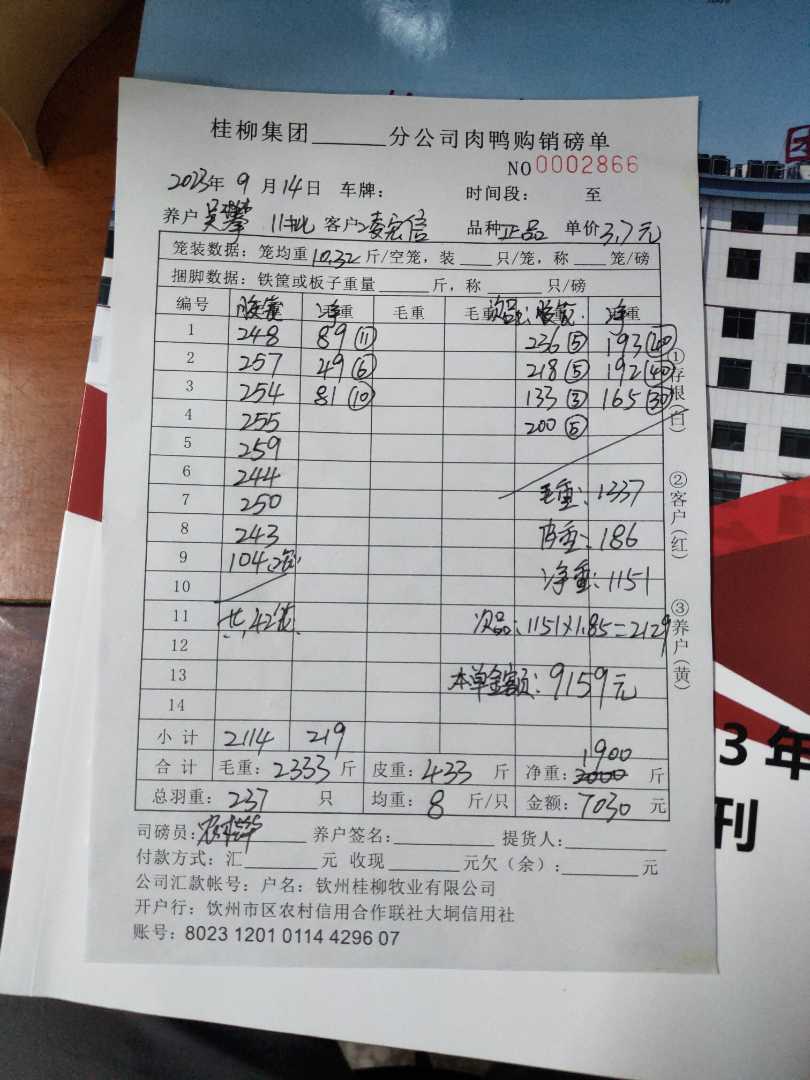 桂柳集团______分公司肉鸭购销磅单
NO 0002866
2023年 9 月 14日 车牌： 时间段： 至
养户 吴攀 11批 客户 凌宏信 品种 正品 单价 3.7元
笼装数据：笼均重 10.32 斤/空笼，装___只/笼，称___笼/磅
捆脚数据：铁筐或板子重量______斤，称______只/磅
编号 净 毛重 毛重 次品： 净
1 248 89⑪ 236⑤ 193㊵
2 257 49⑥ 218⑤ 192㊵
3 254 81⑩ 133③ 165㉚
4 255 200⑤
5 259
6 244
7 250 毛重：1337
8 243 皮重：186
9 104
10 净重：1151
11 共42 次品：1151×1.85=2129
12
13 本单金额：9159元
14
小计 2114 219
1900
合计 毛重：2333 斤 皮重：433 斤 净重：2000 斤
总羽重：237 只 均重：8 斤/只 金额：7030 元
司磅员： 养户签名：__________ 提货人：__________
付款方式：汇________元 收现________元欠（余）：________元
公司汇款帐号：户名：钦州桂柳牧业有限公司
开户行：钦州市区农村信用合作联社大垌信用社
账号：8023 1201 0114 4296 07
①存根（白）
②客户（红）
③养户（黄）
3年
刊